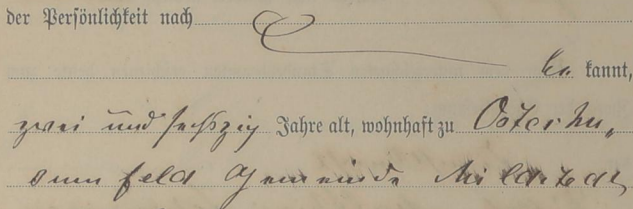 der Persönlichkeit nach
be kannt,
zwei und sechszig Jahre alt, wohnhaft zu Osterhu„
sumfeld Gemeinde Mildstedt